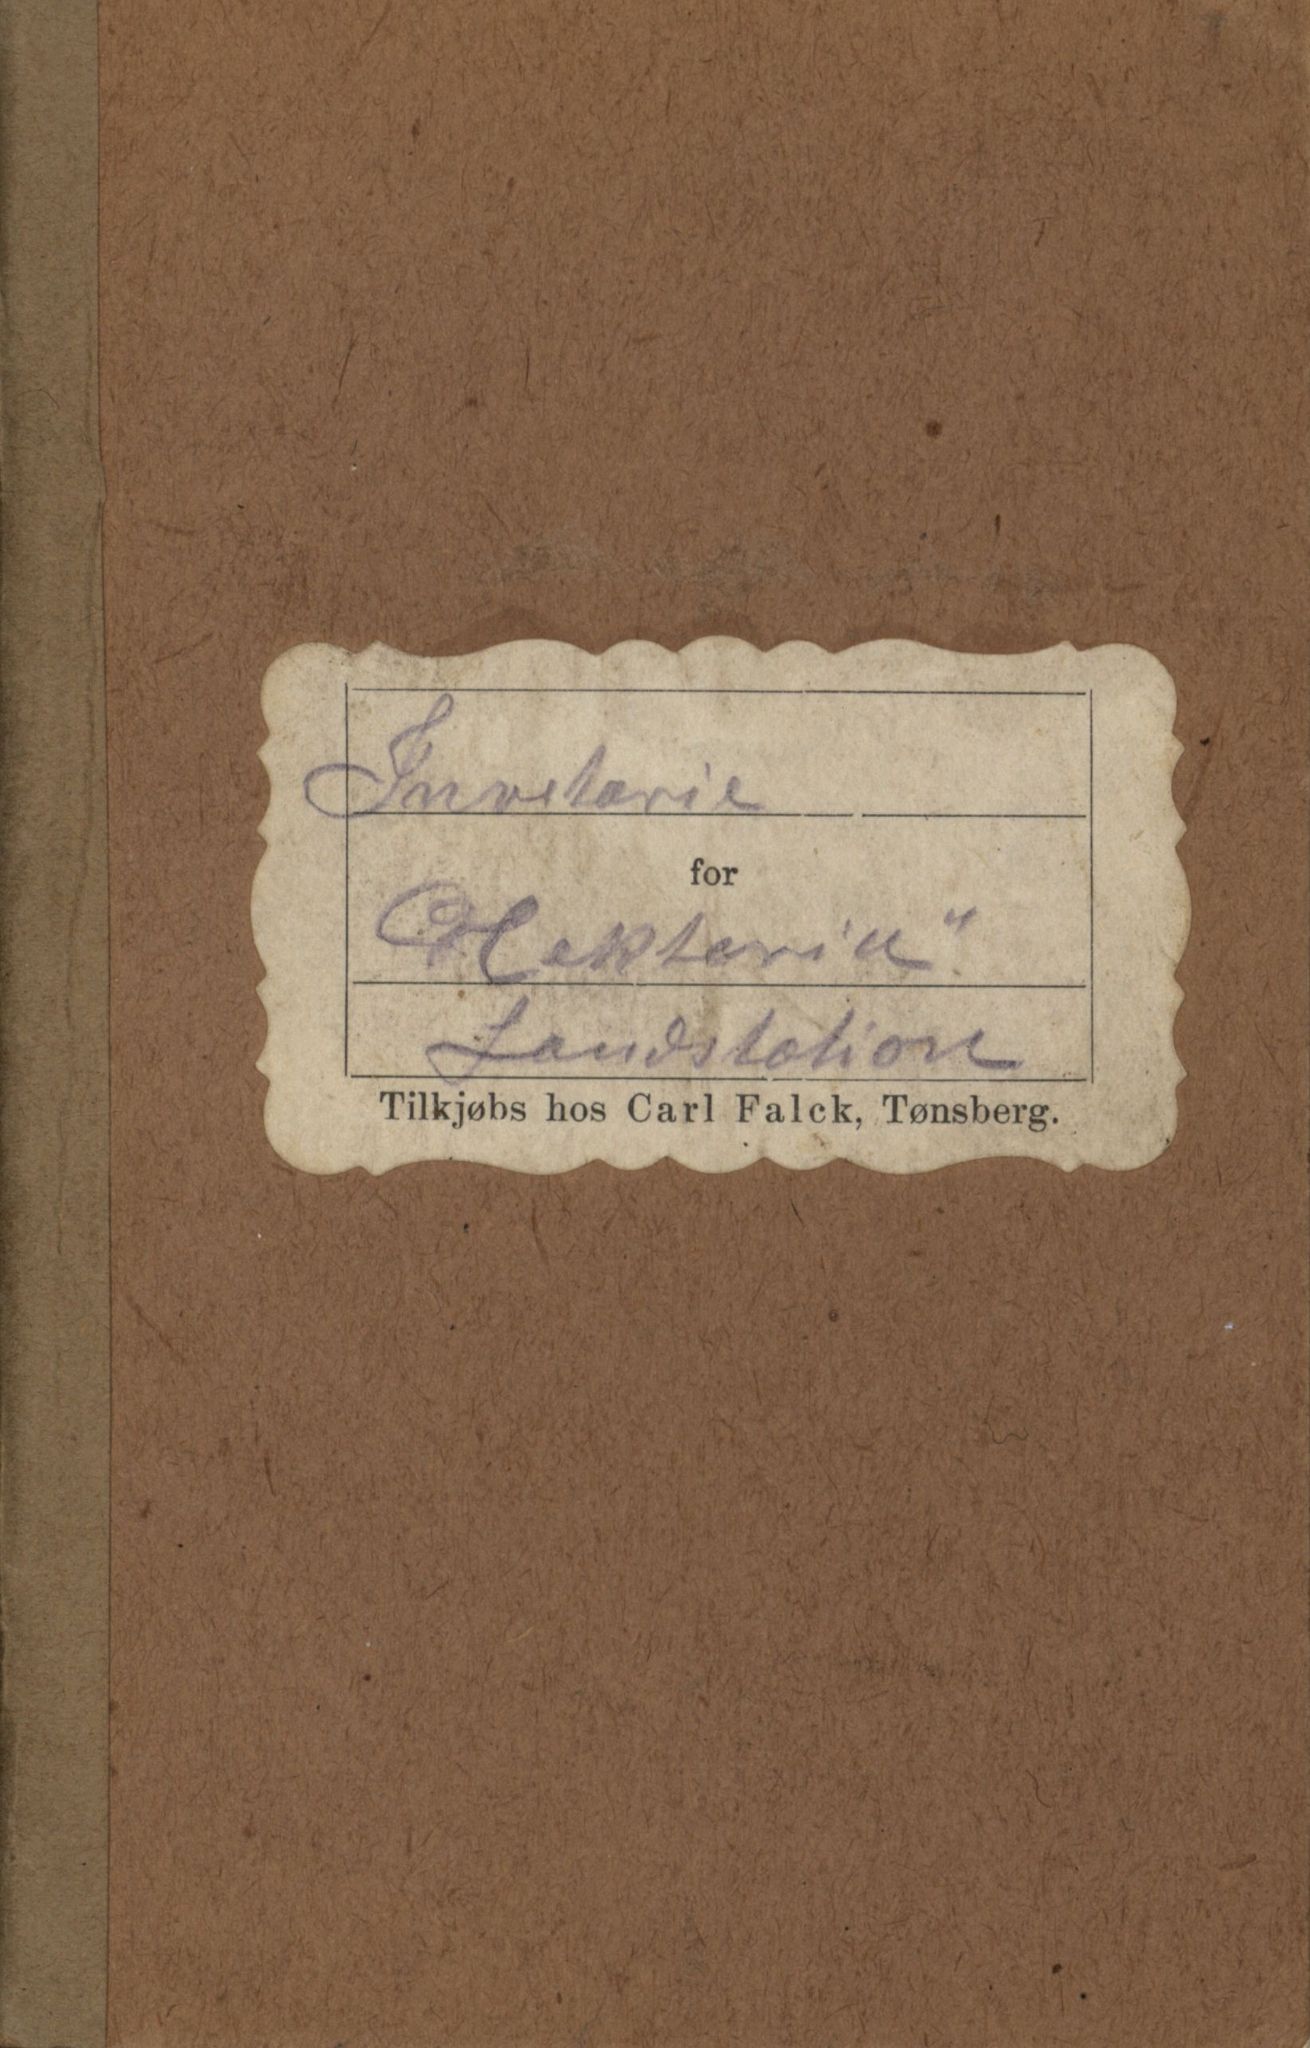 Invetarie
for
Hektoria"
Landstation
Tilkjøbs hos Carl Falck, Tønsberg.